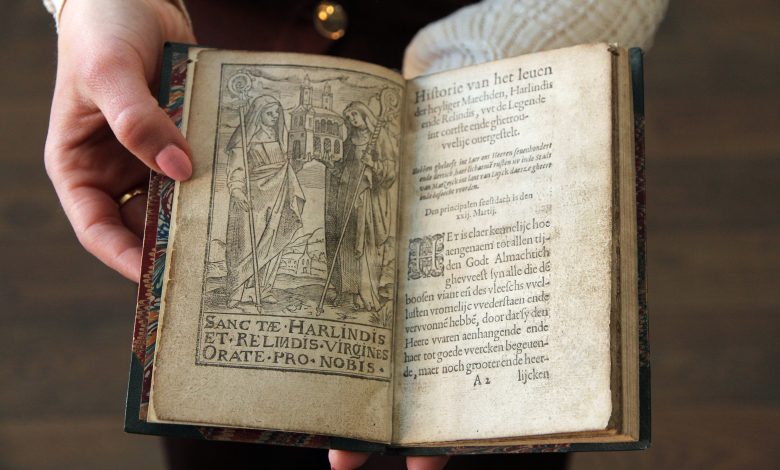 SANCTÆ · HARLINDIS
ET · RELINDIS · VIRGINES
ORATE · PRO · NOBIS ·
Historie van het leuen
der heyliger Maechden, Harlindis
ende Relindis, vvt de Legende
int cortste ende ghetrou-
vvelijc ouergestelt.
int Iaer ons Heeren seuenhondert
ende
van int lant van
ende besocht vvorden.
Den principalen feestdach is den
xxij. Martij.
HEt is claer kennelijc hoe
aengenaem tot allen tij-
den Godt Almachtich
ghevveest syn alle die dē
boosen viant en̄ des vleeschs vvel-
lusten vromelijc vvederstaen ende
vervvonnē hebbē, door dat sy den
Heere vvaren aenhangende ende
haer tot goede vvercken begeuen-
de, maer noch grooter ende heer-
A 2 lijcken